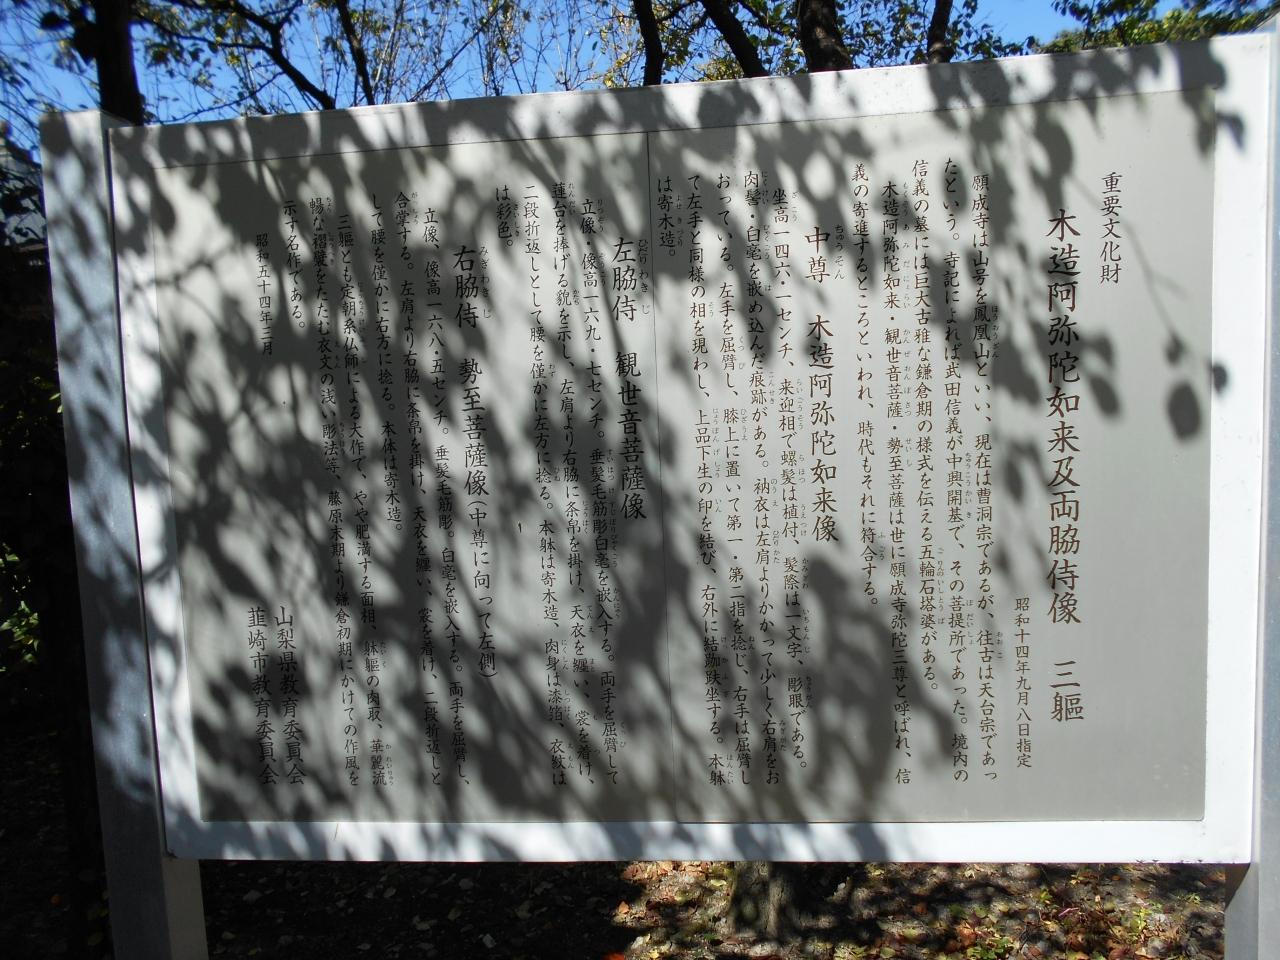 重要文化財
木造阿弥陀如来及両脇侍像 三軀
昭和十四年九月八日指定
願成寺は山号を鳳凰山といい、現在は曹洞宗であるが、往古は天台宗であっ
たという。寺記によれば武田信義が中興開基で、その菩提所であった。境内の
信義の墓には巨大古雅な鎌倉期の様式を伝える五輪石塔婆がある。
木造阿弥陀如来・観世音菩薩・勢至菩薩は世に願成寺弥陀三尊と呼ばれ、信
義の寄進するところといわれ、時代もそれに符合する。
中尊 木造阿弥陀如来像
坐高一四六・一センチ、来迎相で螺髪は植付、髪際は一文字、彫眼である。
肉髻・白毫を嵌め込んだ痕跡がある。衲衣は左肩よりかかって少しく右肩をお
おっている。左手を屈臂し、膝上に置いて第一・第二指を捻じ、右手は屈臂し
て左手と同様の相を現わし、上品下生の印を結び、右外に結跏趺坐する。本躰
は寄木造。
左脇侍 観世音菩薩像
立像・像高一六九・七センチ。垂髪毛筋彫白毫を嵌入する。両手を屈臂して
蓮台を捧げる貌を示し、左肩より右脇に条帛を掛け、天衣を纏い、裳を着け、
二段折返しとして腰を僅かに左方に捻る。本躰は寄木造、肉身は漆箔、衣紋は
は彩色。
右脇侍 勢至菩薩像(中尊に向って左側)
立像、像高一六八・五センチ。垂髪毛筋彫。白毫を嵌入する。両手を屈臂し、
合掌する。左肩より右脇に条帛を掛け、天衣を纏い、裳を着け、二段折返しと
して腰を僅かに右方に捻る。本体は寄木造。
三軀とも定朝系仏師による大作で、やや肥満する面相、躰軀の肉取、華麗流
暢な褶襞をたたむ衣文の浅い彫法等、藤原末期より鎌倉初期にかけての作風を
示す名作である。
昭和五十四年三月
山梨県教育委員会
韮崎市教育委員会